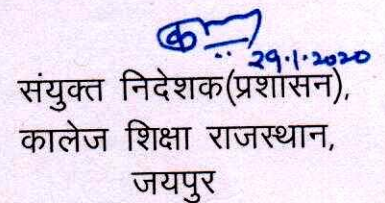 29.1.2020
संयुक्त निदेशक(प्रशासन),
कालेज शिक्षा राजस्थान,
जयपुर